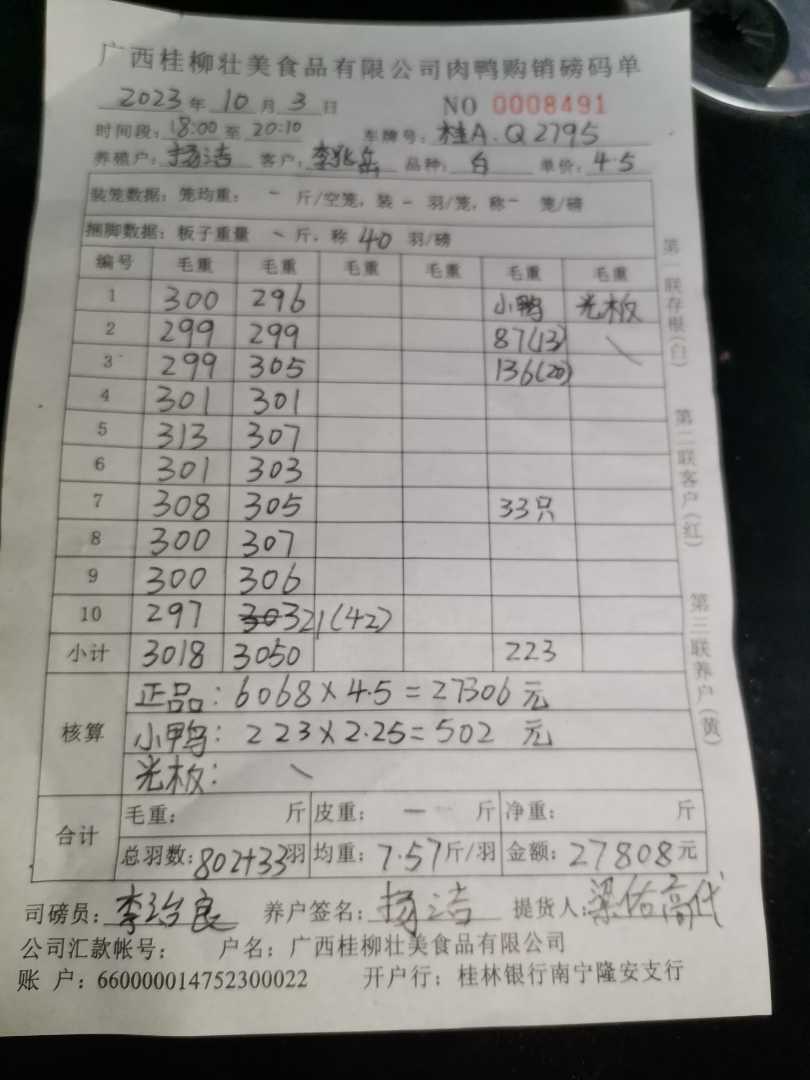 广西桂柳壮美食品有限公司肉鸭购销磅码单
2023年 10 月 3 日 NO 0008491
时间段: 18:00 至 20:10 车牌号: 桂A.Q2795
养殖户: 杨洁 客户: 李 岳 品种: 白 单价: 4.5
装笼数据: 笼均重: 一 斤/空笼, 装 - 羽/笼, 称 - 笼/磅
捆脚数据: 板子重量 \ 斤, 称 40 羽/磅
编号 毛重 毛重 毛重 毛重 毛重 毛重
1 300 296 小鸭 光板
2 299 299 87(13) \
3 299 305 136(20)
4 301 301
5 313 307
6 301 303
7 308 305 33只
8 300 307
9 300 306
10 297 321(42)
小计 3018 3050 223
核算
正品: 6068×4.5=27306 元
小鸭: 223×2.25=502 元
光板: \
合计
毛重: 斤 皮重: 一 斤 净重: 斤
总羽数: 802+33羽 均重: 7.57斤/羽 金额: 27808元
司磅员: 李治良 养户签名: 杨洁 提货人: 梁佑高代
公司汇款帐号: 户名: 广西桂柳壮美食品有限公司
账 户: 660000014752300022 开户行: 桂林银行南宁隆安支行
第一联存根(白)
第二联客户(红)
第三联养户(黄)